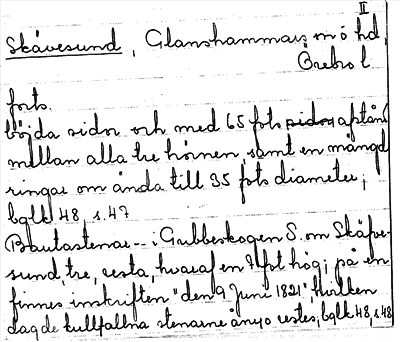 II
Skävesund, Glanshammars sn ö hd,
Örebro l.
forts.
böjda sidor och med 65 fots sidor afstånd
mellan alla tre hörnen, samt en mängd
ringar om ända till 35 fots diameter;
bglk 48, s. 47
Bautastenar -- i Gubbeskogen S. om Skäfve-
sund, tre, resta, hvaraf en 7 fot hög; på en
finnes inskriften "den 9 Juni 1821", hvilken
dag de kullfallna stenarne ånyo restes, bglk 48, s. 48